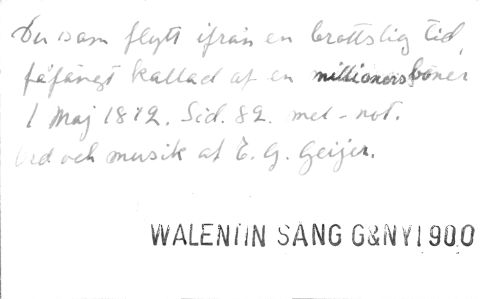 Du som flytt ifrån en brottslig tid,
fåfängt kallad af en millioners böner
1 Maj 1812. Sid. 82. met-not.
Ord och musik af E. G. Geijer.
WALENTIN SANG G&NY1900